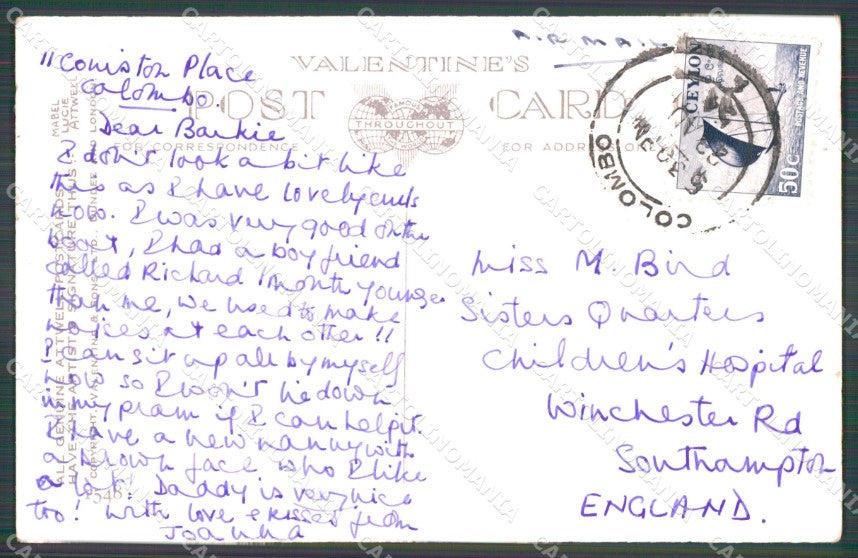 11 Coniston Place
Colombo.
Dear Barkie
I don't look a bit like
this as I have lovely curls
now. I was very good on the
boat, I had a boy friend
called Richard 1 month younger
than me, we used to make
noises at each other!!
I can sit up all by myself
now so I won't lie down
in my pram if I can help it.
I have a new nanny with
a brown face who I like
a lot! Daddy is very nice
too! With love & kisses from
Joanna
AIR MAIL
VALENTINE'S
POST CARD
FAMOUS
THROUGHOUT
FOR CORRESPONDENCE
FOR ADDRESS
MABEL
LUCIE
ATTWELL
ALL GENUINE ATTWELL POSTCARDS
HAVE THE ARTIST'S SIGNATURE THUS:
COPYRIGHT. VALENTINE & SONS LTD., DUNDEE AND LONDON
CEYLON
POSTAGE AND REVENUE
50 C
COLOMBO
5 30 PM
Miss M. Bird
Sisters Quarters
Children's Hospital
Winchester Rd
Southampton
ENGLAND.
CARTOLINOMANIA